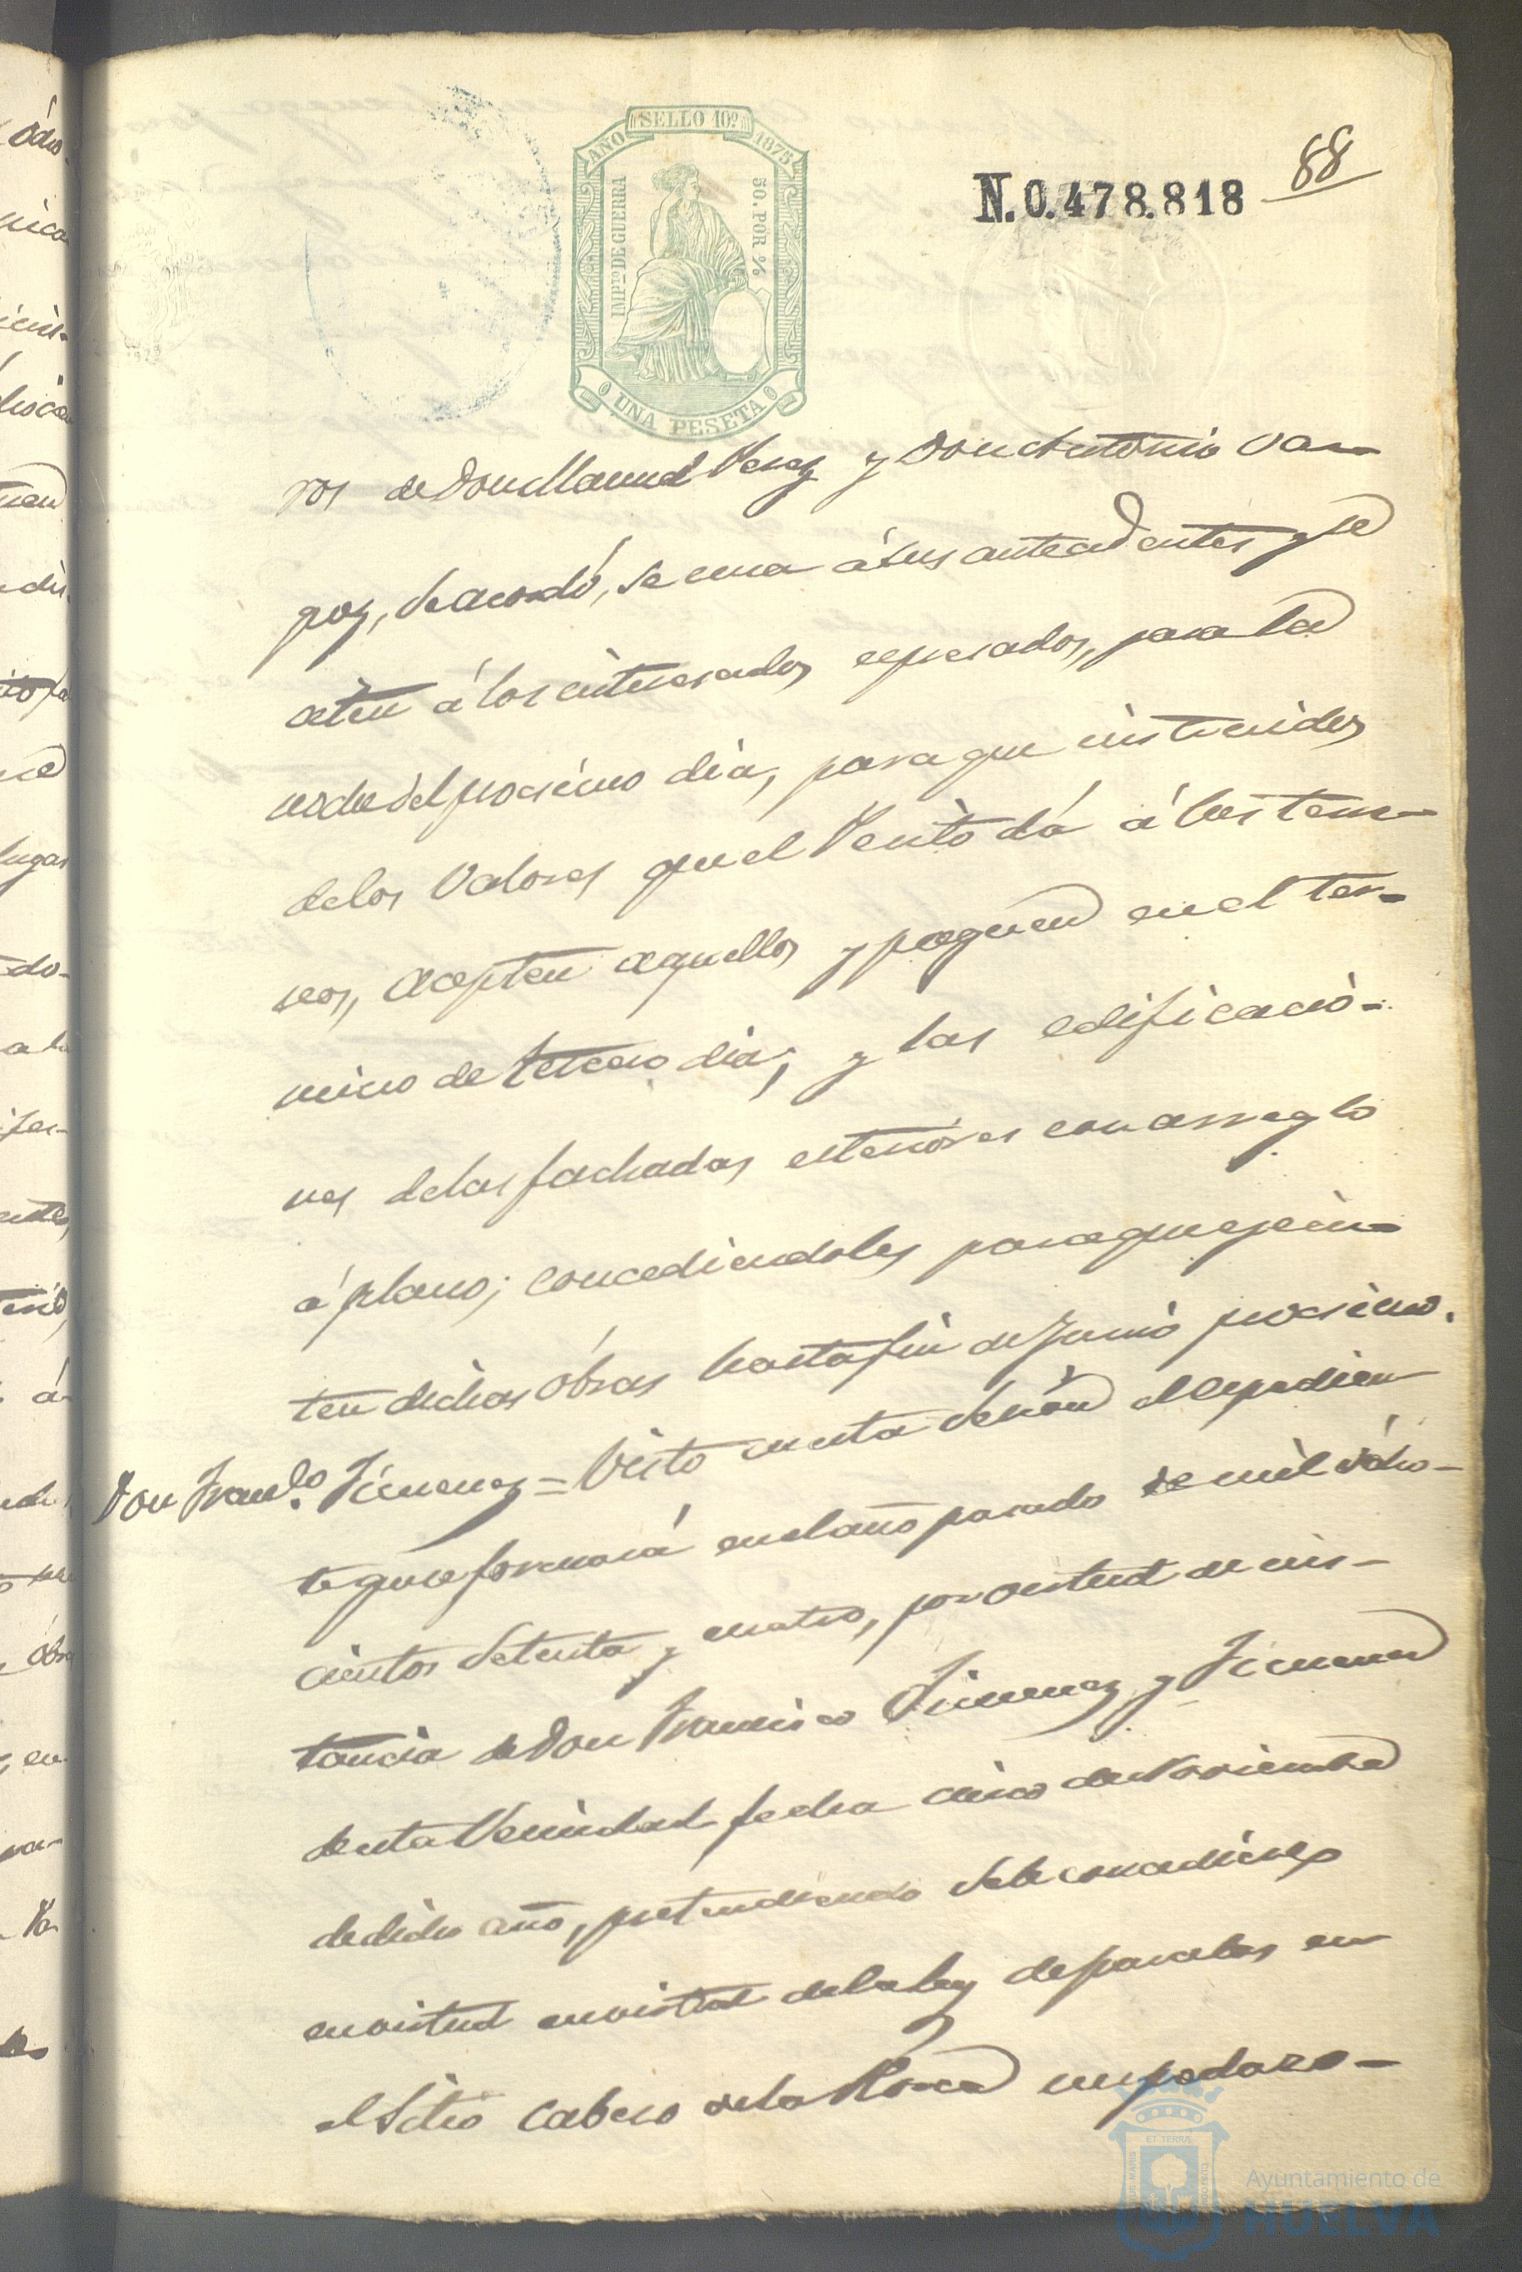 SELLO 10º
AÑO 1875
IMPTO DE GUERRA
50. POR %
UNA PESETA
N.0.478.818
88
ros de Don Manuel Perez y Don Antonio Var-
gaz, se acordó, se una á sus antecedentes y se
citen á los interesados espresados, para la
noche del procsimo dia, para que instruidos
de los valores que el Perito dá á los terre-
nos, acepten aquellos y paguen en el ter-
mino de tercero dia; y las edificacio-
nes de las fachadas esteriores con arreglo
á plano; concediendoles para que ejecu-
ten dichas óbras hasta fin de Junio procsimo.
Don Franco. Jimenez = Visto cuenta se dió el espedien-
te que se formará en el año pasado de mil ócho-
cientos setenta y cuatro, por virtud de ins-
tancia de Don Francisco Jimenez y Jimenez
de esta Vecindad fecha cinco de Noviembre
de dicho año, pretendiendo se le concediese
en virtud en virtud de la ley de parcelas en
el Sitio Cabezo de la Horca un pedazo-
ET TERRA
Ayuntamiento de
HUELVA